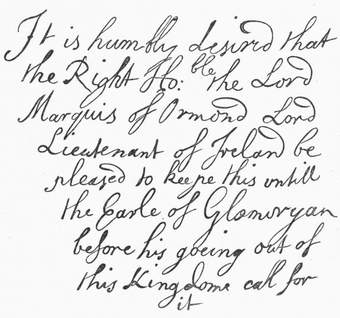 It is humbly desired that
the Right Ho:ble the Lord
Marquis of Ormond Lord
Lieutenant of Ireland be
pleased to keepe this untill
the Earle of Glamorgan
before his goeing out of
this Kingdome call for
it